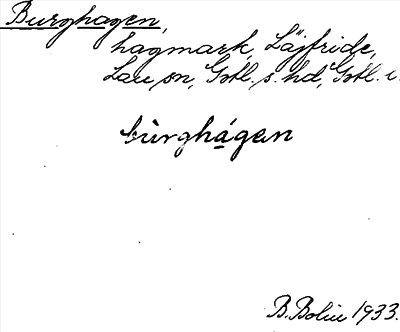 Burghagen,
hagmark, Lajfride,
Lau sn, Gotl. s. hd, Gotl. l.
bùrghágen
B. Bolin 1933.